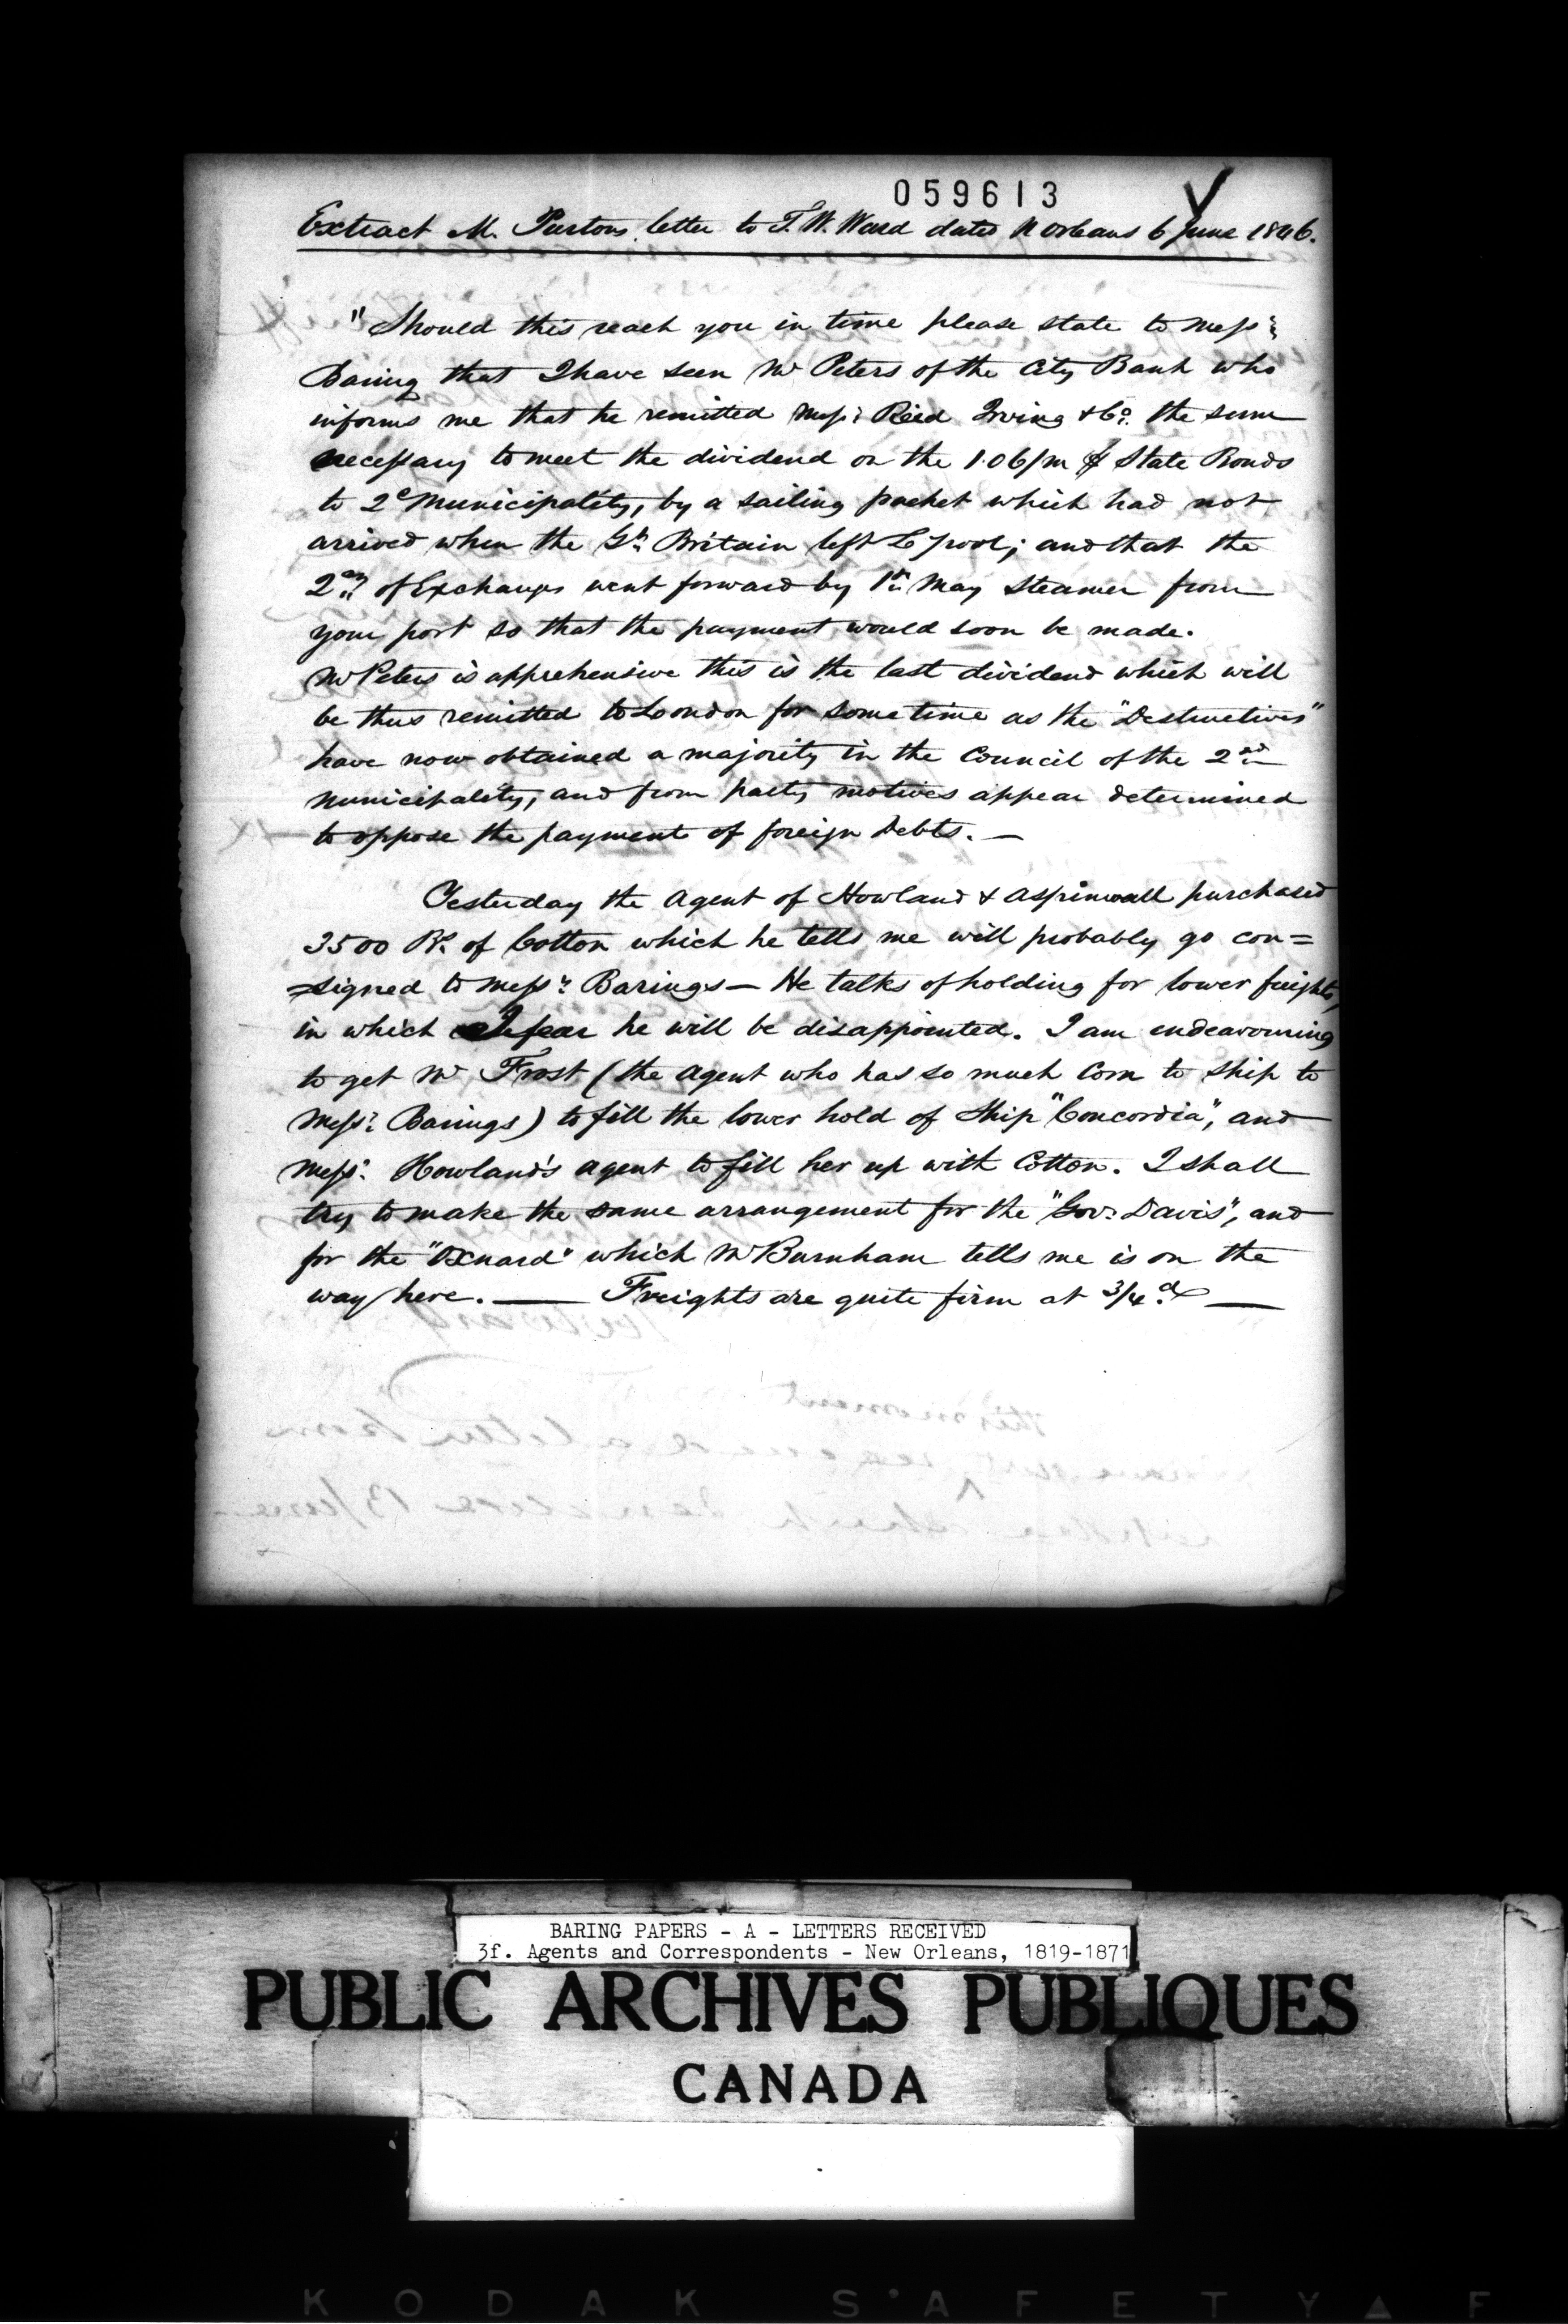 059613
Extract M. Purtons letter to T. W. Ward dated N Orleans 6 June 1846.
"Should this reach you in time please state to Messrs
Baring that I have seen Mr Peters of the City Bank who
informs me that he remitted Messrs Reid Irving & Co. the sum
necessary to meet the dividend on the State Bonds
to 2d Municipality, by a sailing packet which had not
arrived when the Gt. Britain left L'pool; and that the
2nd of Exchange went forward by 1st May Steamer from
your port so that the payment would soon be made.
Mr Peters is apprehensive this is the last dividend which will
be thus remitted to London for some time as the "Destructives"
have now obtained a majority in the Council of the 2nd
Municipality, and from party motives appear determined
to oppose the payment of foreign Debts. —
Yesterday the Agent of Howland & Aspinwall purchased
3500 Bs. of Cotton which he tells me will probably go con=
=signed to Messrs Barings — He talks of holding for lower freights,
in which I fear he will be disappointed. I am endeavouring
to get Mr Frost (the Agent who has so much Corn to ship to
Messrs Barings) to fill the lower hold of Ship "Concordia", and
Messrs Howland's agent to fill her up with Cotton. I shall
try to make the same arrangement for the "Govr. Davis", and
for the "Oxnard" which Mr Burnham tells me is on the
way here. — Freights are quite firm at 3/4d —
BARING PAPERS - A - LETTERS RECEIVED
3f. Agents and Correspondents - New Orleans, 1819-1871
PUBLIC ARCHIVES PUBLIQUES
CANADA
KODAK SAFETY F